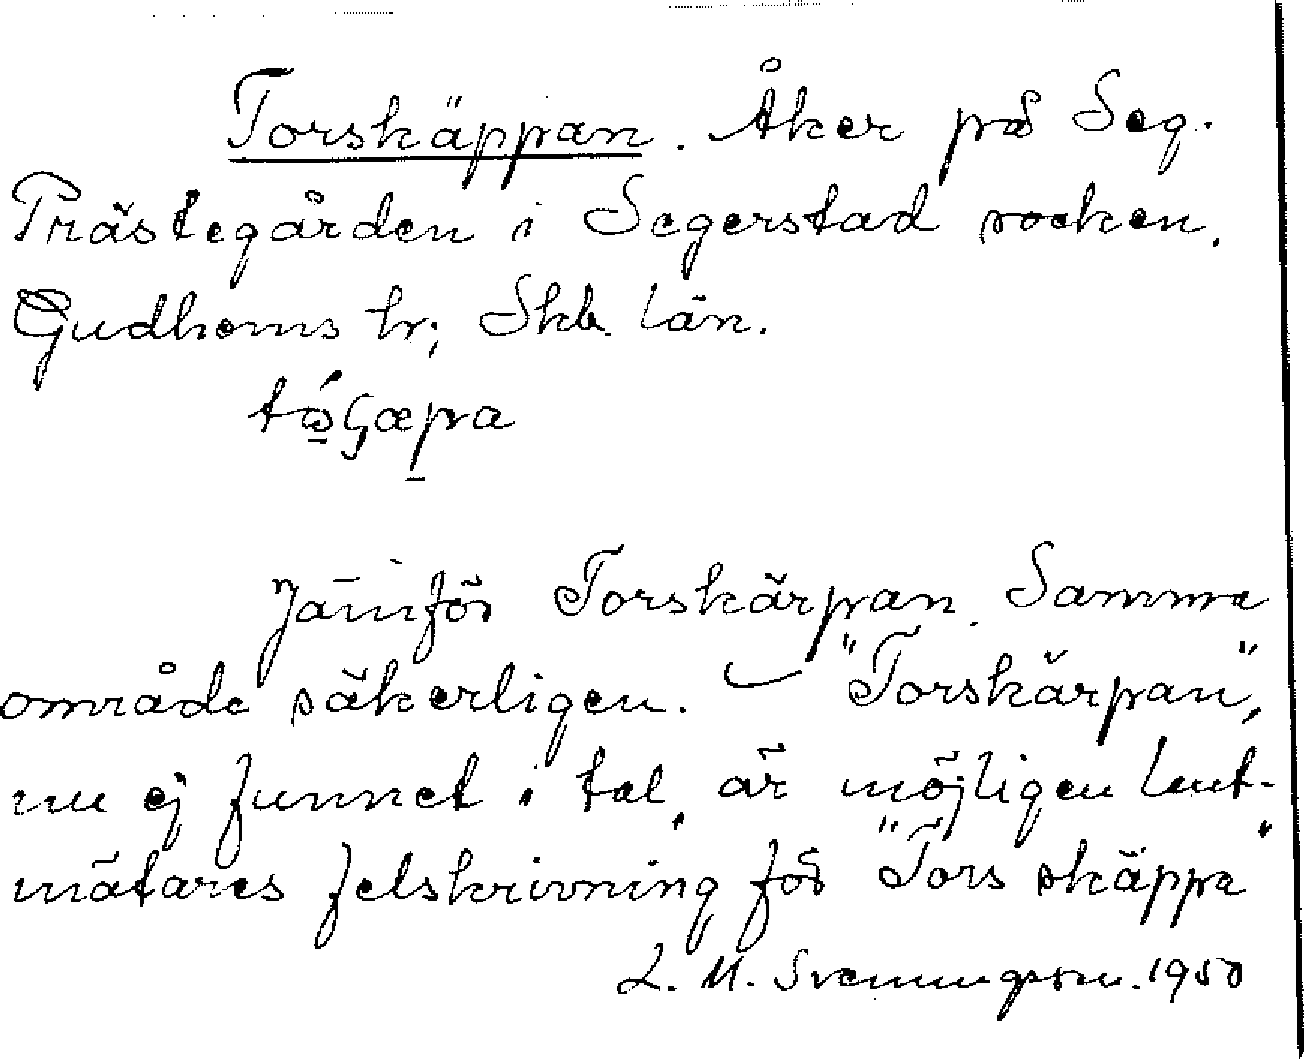 Torskäppan. Åker på Seg.
Prästegården i Segerstad socken.
Gudhems hr; Skb. län.
Jämför Torskärpan. Samma
område säkerligen. — "Torskärpan",
nu ej funnet i tal, är möjligen lant-
mätares felskrivning för "Tors skäppa"
L. M. Svenungsson. 1950